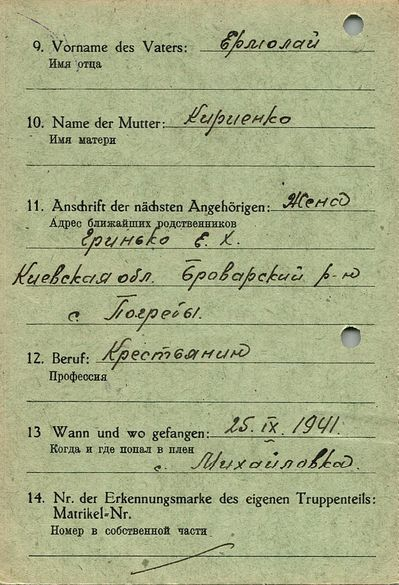 9. Vorname des Vaters: Ермолай
Имя отца
10. Name der Mutter: Кириенко
Имя матери
11. Anschrift der nächsten Angehörigen: Жена
Адрес ближайших родственников
Еринько Е. Х.
Киевская обл. Броварский р-н
с. Погребы.
12. Beruf: Крестьянин
Профессия
13 Wann und wo gefangen: 25. IX. 1941.
Когда и где попал в плен
с. Михайловка.
14. Nr. der Erkennungsmarke des eigenen Truppenteils:
Matrikel-Nr.
Номер в собственной части